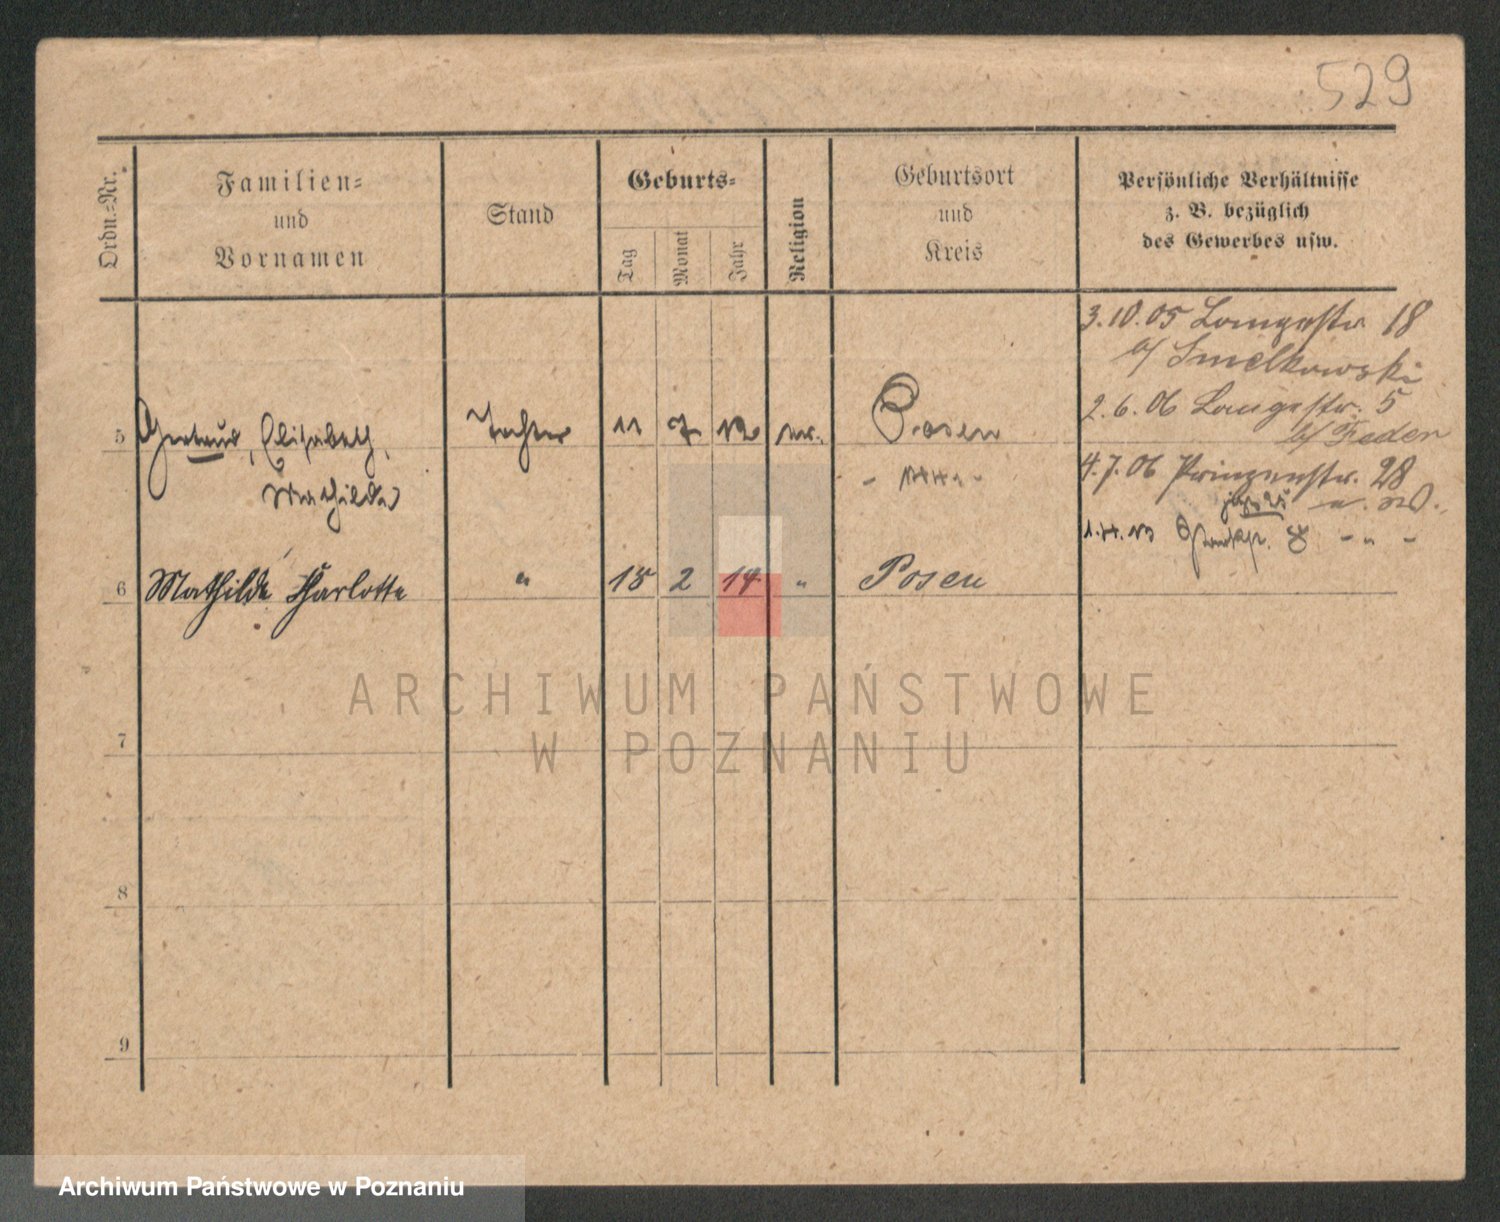 529
Ordn.-Nr.
Familien-
und
Vornamen
Stand
Geburts-
Tag
Monat
Jahr
Religion
Geburtsort
und
Kreis
Persönliche Verhältnisse
z. B. bezüglich
des Gewerbes usw.
3.10.05 Langestr. 18
b/ Smelkowski
2.6.06 Langestr. 5
b/ Feder
5 Gertrud, Elisabeth, Tochter 11 7 12 Posen
Mathilde
4.7.06 Prinzenstr. 28
jetzt 25
1.4.13 8 - " -
6 Mathilde Charlotte " 18 2 14 " Posen
7
8
9
ARCHIWUM PAŃSTWOWE
W POZNANIU
Archiwum Państwowe w Poznaniu